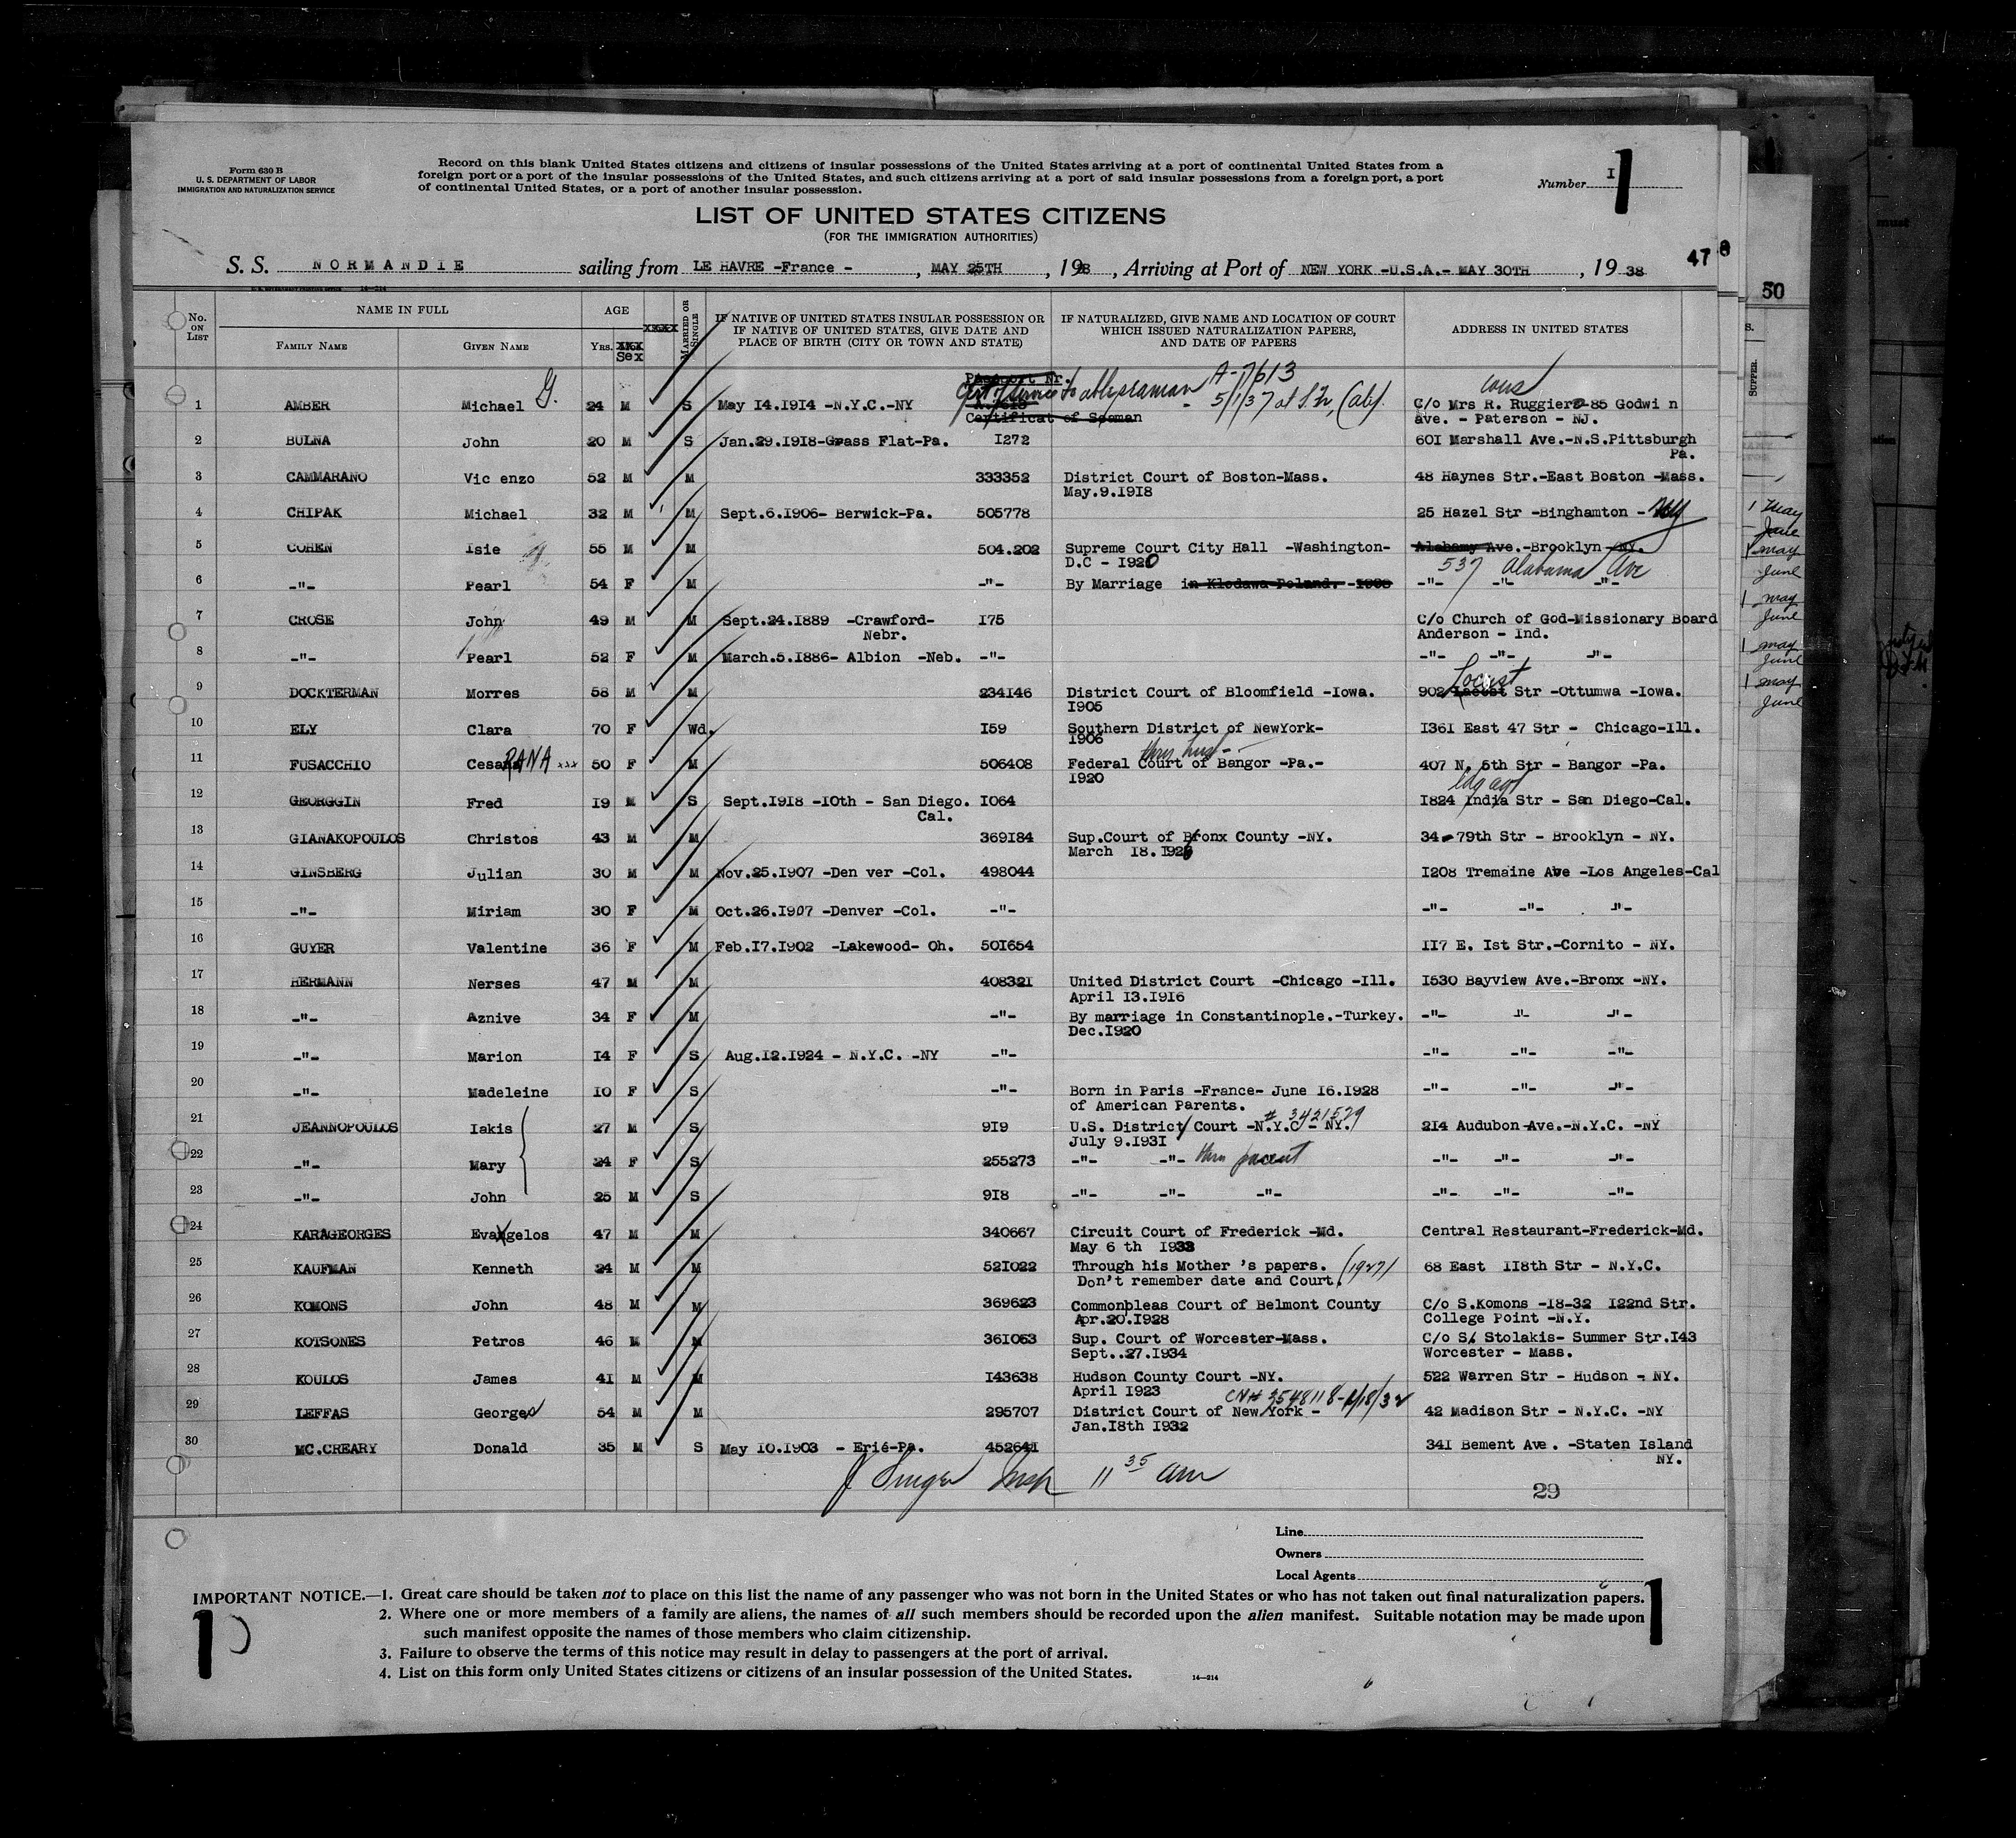 Form 630 B
U. S. DEPARTMENT OF LABOR
IMMIGRATION AND NATURALIZATION SERVICE
Record on this blank United States citizens and citizens of insular possessions of the United States arriving at a port of continental United States from a
foreign port or a port of the insular possessions of the United States, and such citizens arriving at a port of said insular possessions from a foreign port, a port
of continental United States, or a port of another insular possession.
Number I 1
LIST OF UNITED STATES CITIZENS
(FOR THE IMMIGRATION AUTHORITIES)
S. S. NORMANDIE sailing from LE HAVRE -France - , MAY 25TH , 1938 , Arriving at Port of NEW YORK -U.S.A.- MAY 30TH , 19 38
47 8
50
No. ON LIST
NAME IN FULL
FAMILY NAME
GIVEN NAME
AGE
YRS.
Sex
MARRIED OR SINGLE
IF NATIVE OF UNITED STATES INSULAR POSSESSION OR
IF NATIVE OF UNITED STATES, GIVE DATE AND
PLACE OF BIRTH (CITY OR TOWN AND STATE)
IF NATURALIZED, GIVE NAME AND LOCATION OF COURT
WHICH ISSUED NATURALIZATION PAPERS,
AND DATE OF PAPERS
ADDRESS IN UNITED STATES
SUPPER
Passport Nr.
A-7613
1 AMBER Michael G. 24 M S May 14.1914 -N.Y.C.-NY 5/1/37 at (Cal). C/o Mrs R. Ruggiero-85 Godwi n
Certificat of Seaman ave. - Paterson - NJ.
2 BULNA John 20 M S Jan.29.1918-Grass Flat-Pa. 1272 601 Marshall Ave.-N.S.Pittsburgh
Pa.
3 CAMMARANO Vic enzo 52 M M 333352 District Court of Boston-Mass. 48 Haynes Str.-East Boston -Mass.
May.9.1918
4 CHIPAK Michael 32 M M Sept.6.1906- Berwick-Pa. 505778 25 Hazel Str -Binghamton - NY
5 COHEN Isie 55 M M 504.202 Supreme Court City Hall -Washington- Alabamy Ave.-Brooklyn -NY.
D.C - 1920 537 Alabama Ave
6 -"- Pearl 54 F M -"- By Marriage in Klodawa-Poland. - -"- -"- -"-
7 CROSE John 49 M M Sept.24.1889 -Crawford- 175 C/o Church of God-Missionary Board
Nebr. Anderson - Ind.
8 -"- Pearl 52 F M March.5.1886- Albion -Neb. -"- -"- -"- -"-
Locust
9 DOCKTERMAN Morres 58 M M 234146 District Court of Bloomfield -Iowa. 902 Str -Ottumwa -Iowa.
1905
10 ELY Clara 70 F Wd. 159 Southern District of NewYork- 1361 East 47 Str - Chicago-Ill.
1906
thru husb-
11 FUSACCHIO Cesarana RANA xxx 50 F M 506408 Federal Court of Bangor -Pa.- 407 N. 5th Str - Bangor -Pa.
1920
12 GEORGGIN Fred 19 M S Sept.1918 -10th - San Diego. 1064 1824 India Str - San Diego-Cal.
Cal.
13 GIANAKOPOULOS Christos 43 M M 369184 Sup.Court of Bronx County -NY. 34-79th Str - Brooklyn - NY.
March 18.1926
14 GINSBERG Julian 30 M M Nov.25.1907 -Den ver -Col. 498044 1208 Tremaine Ave -Los Angeles-Cal
15 -"- Miriam 30 F M Oct.26.1907 -Denver -Col. -"- -"- -"- -"-
16 GUYER Valentine 36 F M Feb.17.1902 -Lakewood- Oh. 501654 117 E. 1st Str.-Cornito - NY.
17 HERMANN Nerses 47 M M 408321 United District Court -Chicago -Ill. 1530 Bayview Ave.-Bronx -NY.
April 13.1916
18 -"- Aznive 34 F M -"- By marriage in Constantinople.-Turkey. -"- -"- -"-
Dec.1920
19 -"- Marion 14 F S Aug.12.1924 - N.Y.C. -NY -"- -"- -"- -"-
20 -"- Madeleine 10 F S -"- Born in Paris -France- June 16.1928 -"- -"- -"-
of American Parents.
# 3421579
21 JEANNOPOULOS Iakis 27 M S 919 U.S. District Court -N.Y.C - NY. 214 Audubon-Ave.-N.Y.C. -NY
July 9.1931
22 -"- Mary 24 F S 255273 -"- -"- thru parent -"- -"- -"-
23 -"- John 25 M S 918 -"- -"- -"- -"- -"- -"-
24 KARAGEORGES Evangelos 47 M M 340667 Circuit Court of Frederick -Md. Central Restaurant-Frederick-Md.
May 6 th 1933
25 KAUFMAN Kenneth 24 M M 521022 Through his Mother 's papers. (1927) 68 East 118th Str - N.Y.C.
Don't remember date and Court.
26 KOMONS John 48 M M 369623 Commonpleas Court of Belmont County C/o S.Komons -18-32 122nd Str.
Apr.20.1928 College Point -N.Y.
27 KOTSONES Petros 46 M M 361053 Sup. Court of Worcester-Mass. C/o S. Stolakis- Summer Str.143
Sept..27.1934 Worcester - Mass.
28 KOULOS James 41 M M 143638 Hudson County Court -NY. 522 Warren Str - Hudson - NY.
April 1923
CN# 3548118-1/18/32
29 LEFFAS George 54 M M 295707 District Court of New York - 42 Madison Str - N.Y.C. -NY
Jan.18th 1932
30 MC.CREARY Donald 35 M S May 10.1903 - Erié-Pa. 452641 341 Bement Ave. -Staten Island
NY.
J Singer Insp 11 35 am
29
1 May
June
1 may
June
1 may
June
1 may
June
1 may
June
Line
Owners
Local Agents
IMPORTANT NOTICE.—1. Great care should be taken not to place on this list the name of any passenger who was not born in the United States or who has not taken out final naturalization papers.
2. Where one or more members of a family are aliens, the names of all such members should be recorded upon the alien manifest. Suitable notation may be made upon
such manifest opposite the names of those members who claim citizenship.
3. Failure to observe the terms of this notice may result in delay to passengers at the port of arrival.
4. List on this form only United States citizens or citizens of an insular possession of the United States.
14—214
1
1
must